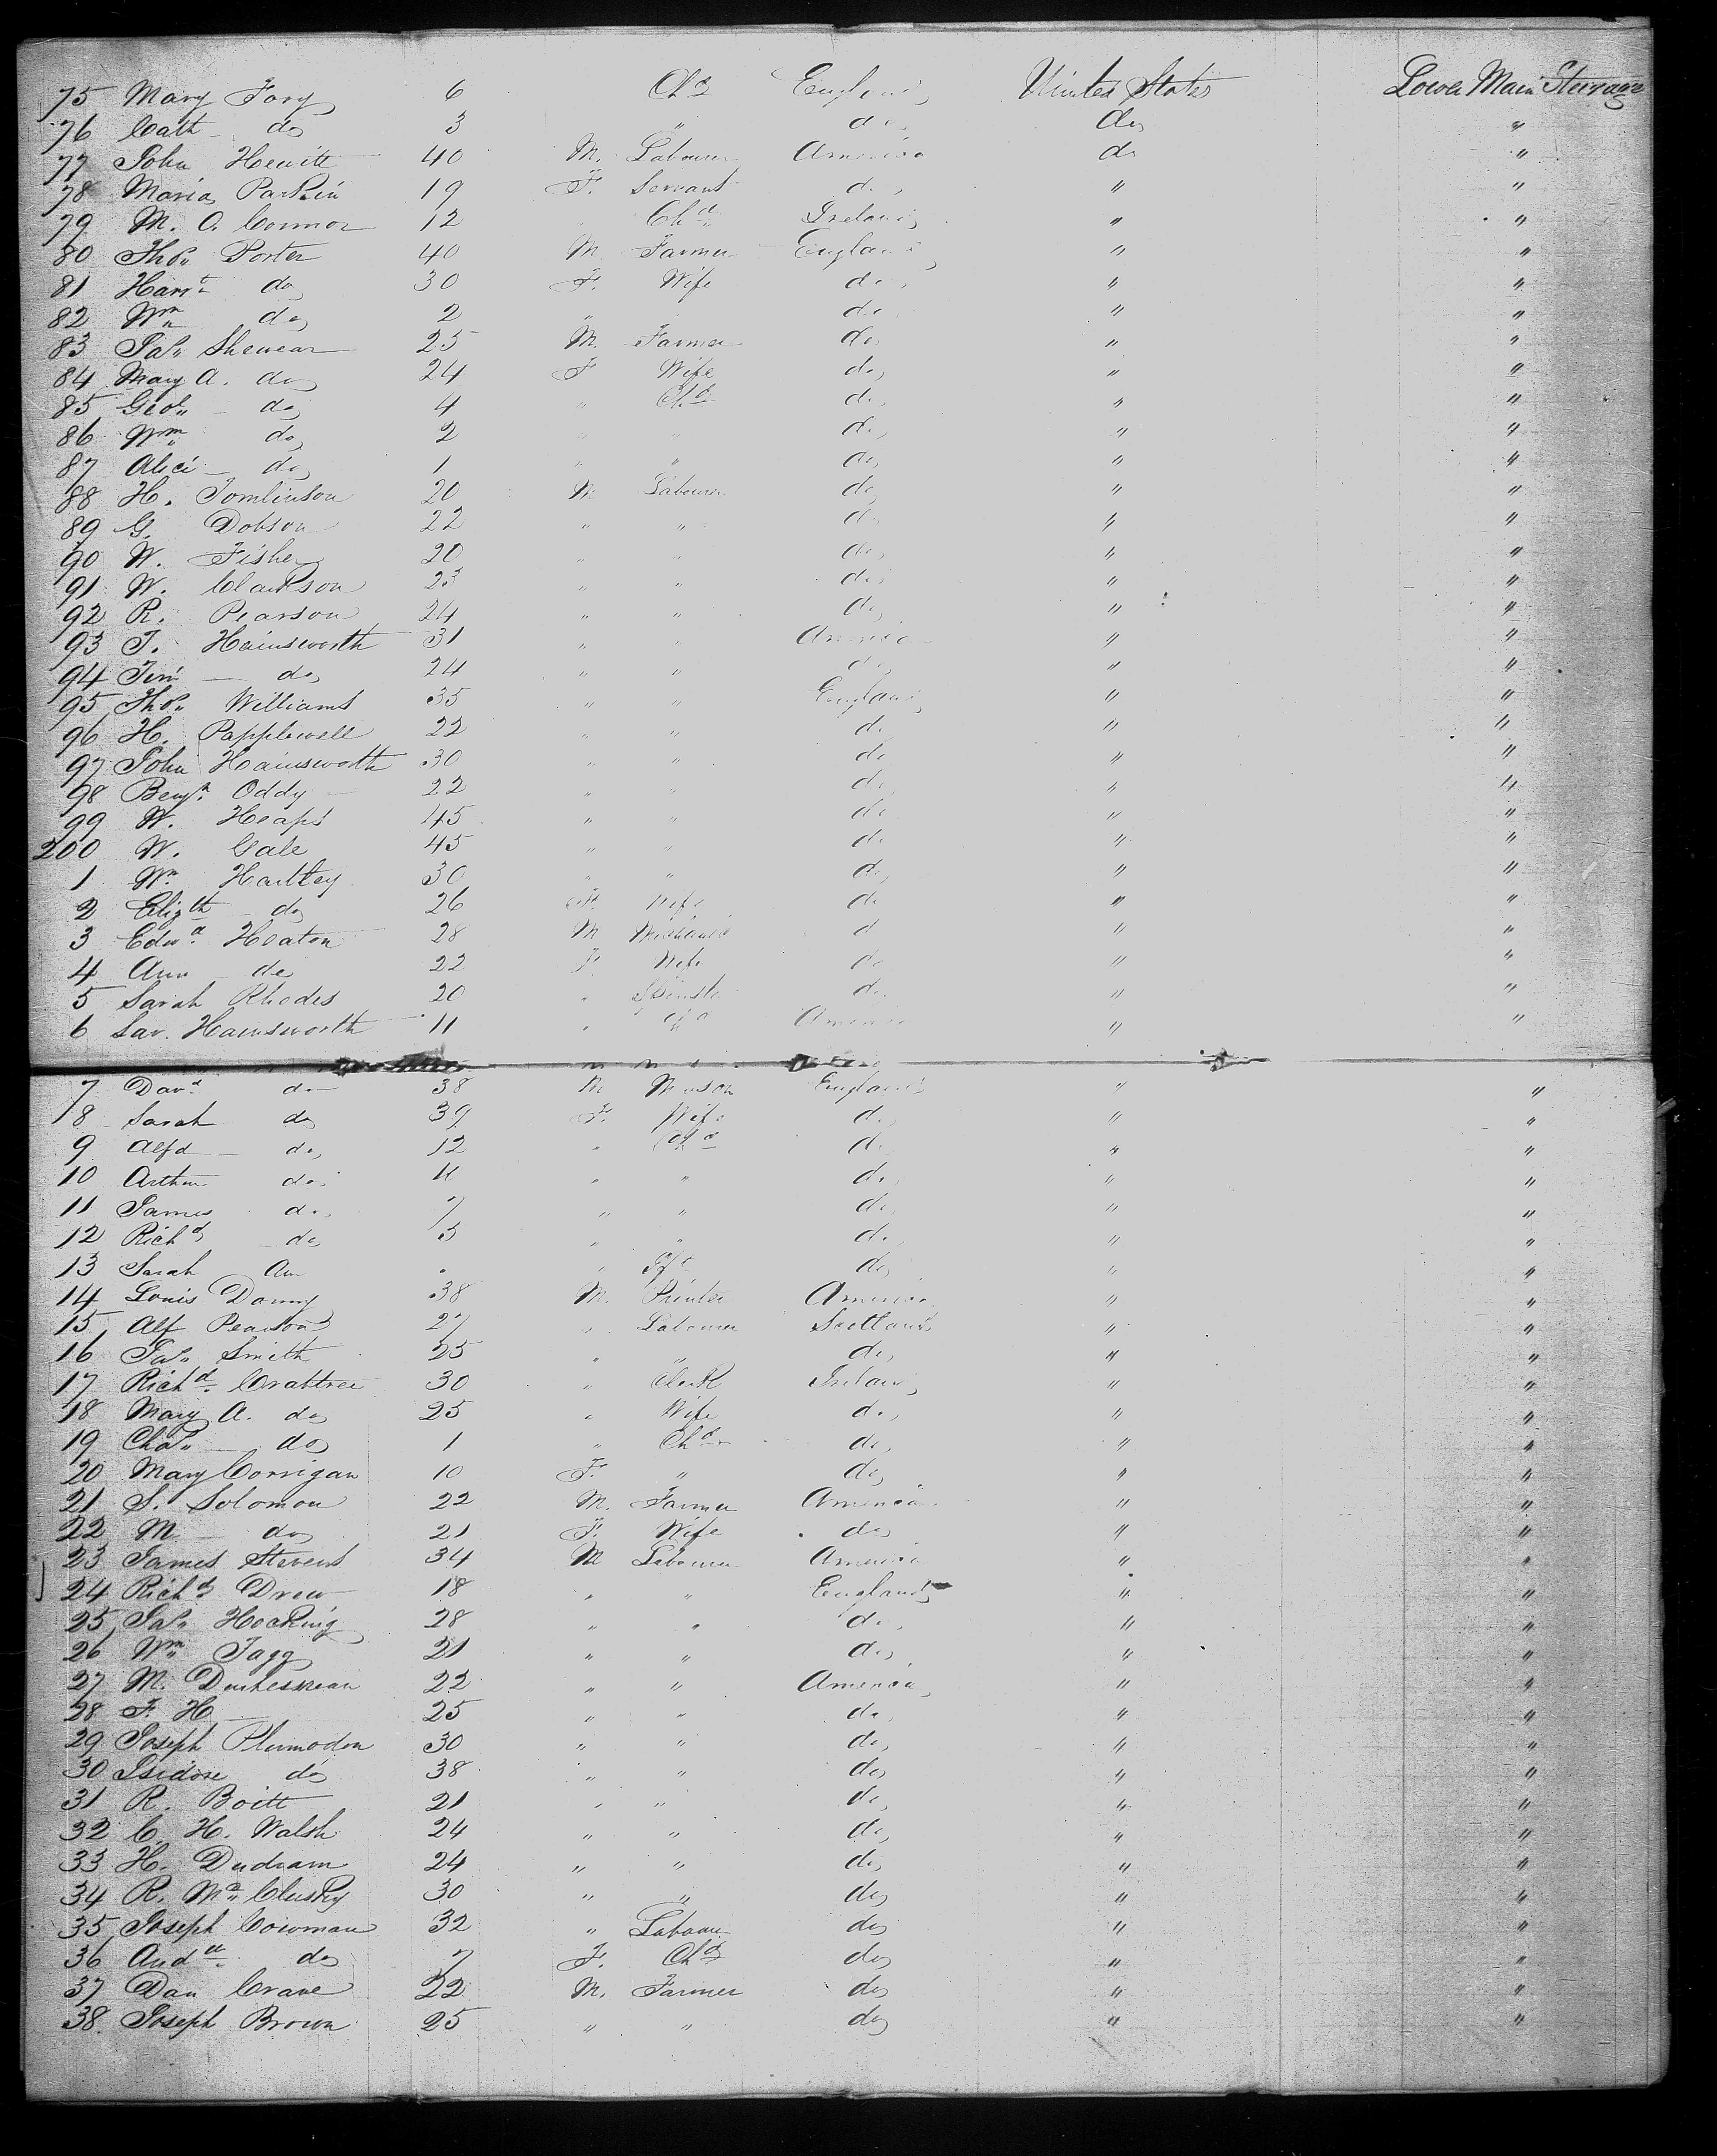 75 Mary Fory 6 Chd England United States Lower Main Steerage
76 Cath do 3 " do do "
77 John Hewitt 40 M. Labourer America do "
78 Maria Parkin 19 F. Servant do " "
79 M. O. Connor 12 Chd Ireland " "
80 Thos Porter 40 M Farmer England " "
81 Harrt do 30 F. Wife do " "
82 Wm do 2 " do " "
83 Jas Shewear 25 M. Farmer do " "
84 Mary A. do 24 F Wife do " "
85 Geo do 4 " Chd do " "
86 Wm do 2 " " do " "
87 Alice do 1 " " do " "
88 H. Tomlinson 20 M Labourer do " "
89 G. Dobson 22 " " do " "
90 W. Fisher 20 " " do " "
91 W. Clarkson 23 " " do " "
92 R. Pearson 24 " " do " "
93 J. Hainsworth 31 " " America " "
94 Jim do 24 " " do " "
95 Thos Williams 35 " " England " "
96 H. Papplewell 22 " " do " "
97 John Hainsworth 30 " " do " "
98 Benjn. Oddy 22 " " do " "
99 W. Heaps 45 " " do " "
200 W. Gale 45 " " do " "
1 Wm Hartley 30 " " do " "
2 Elizth do 26 F. Wife do " "
3 Edwd. Heaton 28 M Mechanic d " "
4 Ann do 22 F Wife do " "
5 Sarah Rhodes 20 " Spinster do " "
6 Sar. Hainsworth 11 " Chd America " "
7 Davd do 38 M Mason England " "
8 Sarah do 39 F. Wife do " "
9 Alfd do 12 " Chd do " "
10 Arthur do 11 " " do " "
11 James do 7 " " do " "
12 Richd do 3 " " do " "
13 Sarah Ann " " Inf do " "
14 Louis Danny 38 M. Printer America " "
15 Alf Pearson 27 " Labourer Scotland " "
16 Jas Smith 25 " " do " "
17 Richd. Crabtree 30 " Clerk Ireland " "
18 Mary A. do 25 " Wife do " "
19 Chas do 1 " Chd do " "
20 Mary Corrigan 10 F. " do " "
21 S. Solomon 22 M. Farmer America " "
22 M do 21 F. Wife do " "
23 James Stevens 34 M Labourer America " "
24 Richd Drew 18 " " England " "
25 Jas Hocking 28 " " do " "
26 Wm Tagg 21 " " do " "
27 M. 22 " " America " "
28 F. H 25 " " do " "
29 Joseph Plumodon 30 " " do " "
30 Isidore do 38 " " do " "
31 R. Boitt 21 " " do " "
32 C. H. Walsh 24 " " do " "
33 H. Dudram 24 " " do " "
34 R. Mc Clusky 30 " " do " "
35 Joseph Cowman 32 " Labour do " "
36 do 7 F. Chd do " "
37 Dan Crane 22 M. Farmer do " "
38 Joseph Brown 25 " " do " "